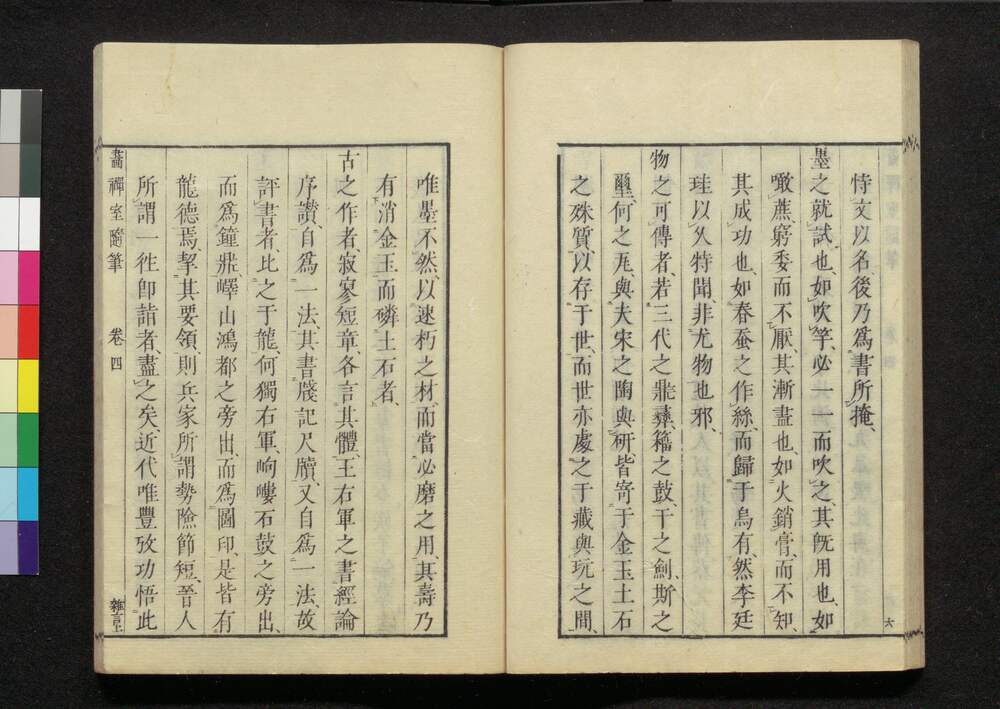 恃文以名後乃爲書所掩、
墨之就試也、如吹竽、必一一而吹之、其旣用也、如
噉蔗、窮委而不厭、其漸盡也、如火銷膏、而不知、
其成功也、如春蚕之作絲、而歸于烏有、然李廷
珪以久特聞、非尤物也邪、
物之可傳者、若三代之鼎彝、籀之鼓、干之劍、斯之
璽、何之瓦、與夫宋之陶與研、皆寄于金玉土石
之殊質、以存于世、而世亦處之于藏與玩之間、
六
唯墨不然、以速朽之材、而當必磨之用、其壽乃
有消金玉而磷土石者、
古之作者、寂寥短章、各言其體、王右軍之書經論
序讚、自爲一法、其書牋記尺牘、又自爲一法、故
評書者、比之于龍、何獨右軍、岣嶁石鼓之旁出、
而爲鐘鼎、嶧山鴻都之旁出、而爲圖印、是皆有
龍德焉、挈其要領、則兵家所謂勢險節短、晉人
所謂一往卽詣者、盡之矣、近代唯豐攷功悟此
畵禪室隨筆 卷四 雜言上